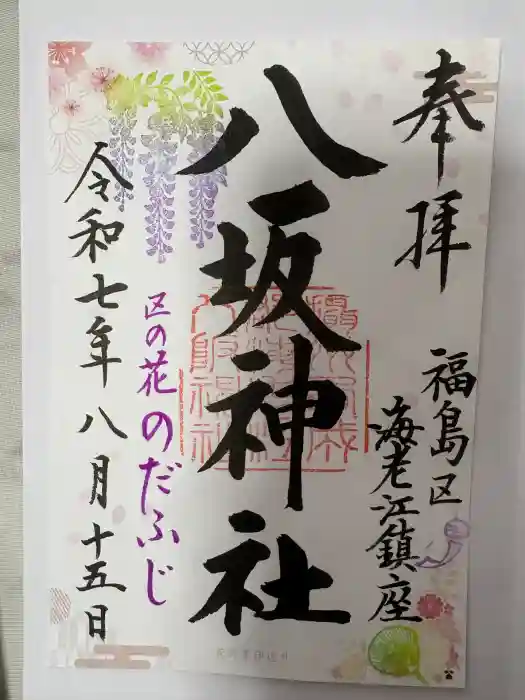 奉拝
福島区
海老江鎮座
八坂神社
区の花のだふじ
令和七年八月十五日